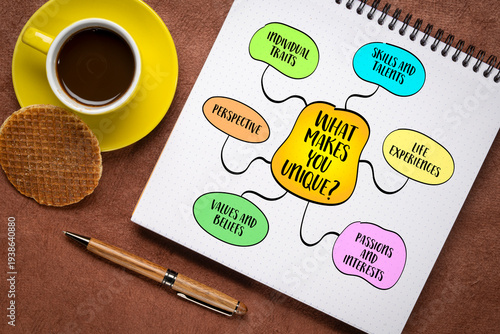 INDIVIDUAL
TRAITS
SKILLS AND
TALENTS
PERSPECTIVE
WHAT
MAKES
YOU
UNIQUE?
LIFE
EXPERIENCES
VALUES AND
BELIEFS
PASSIONS AND
INTERESTS
1938640880